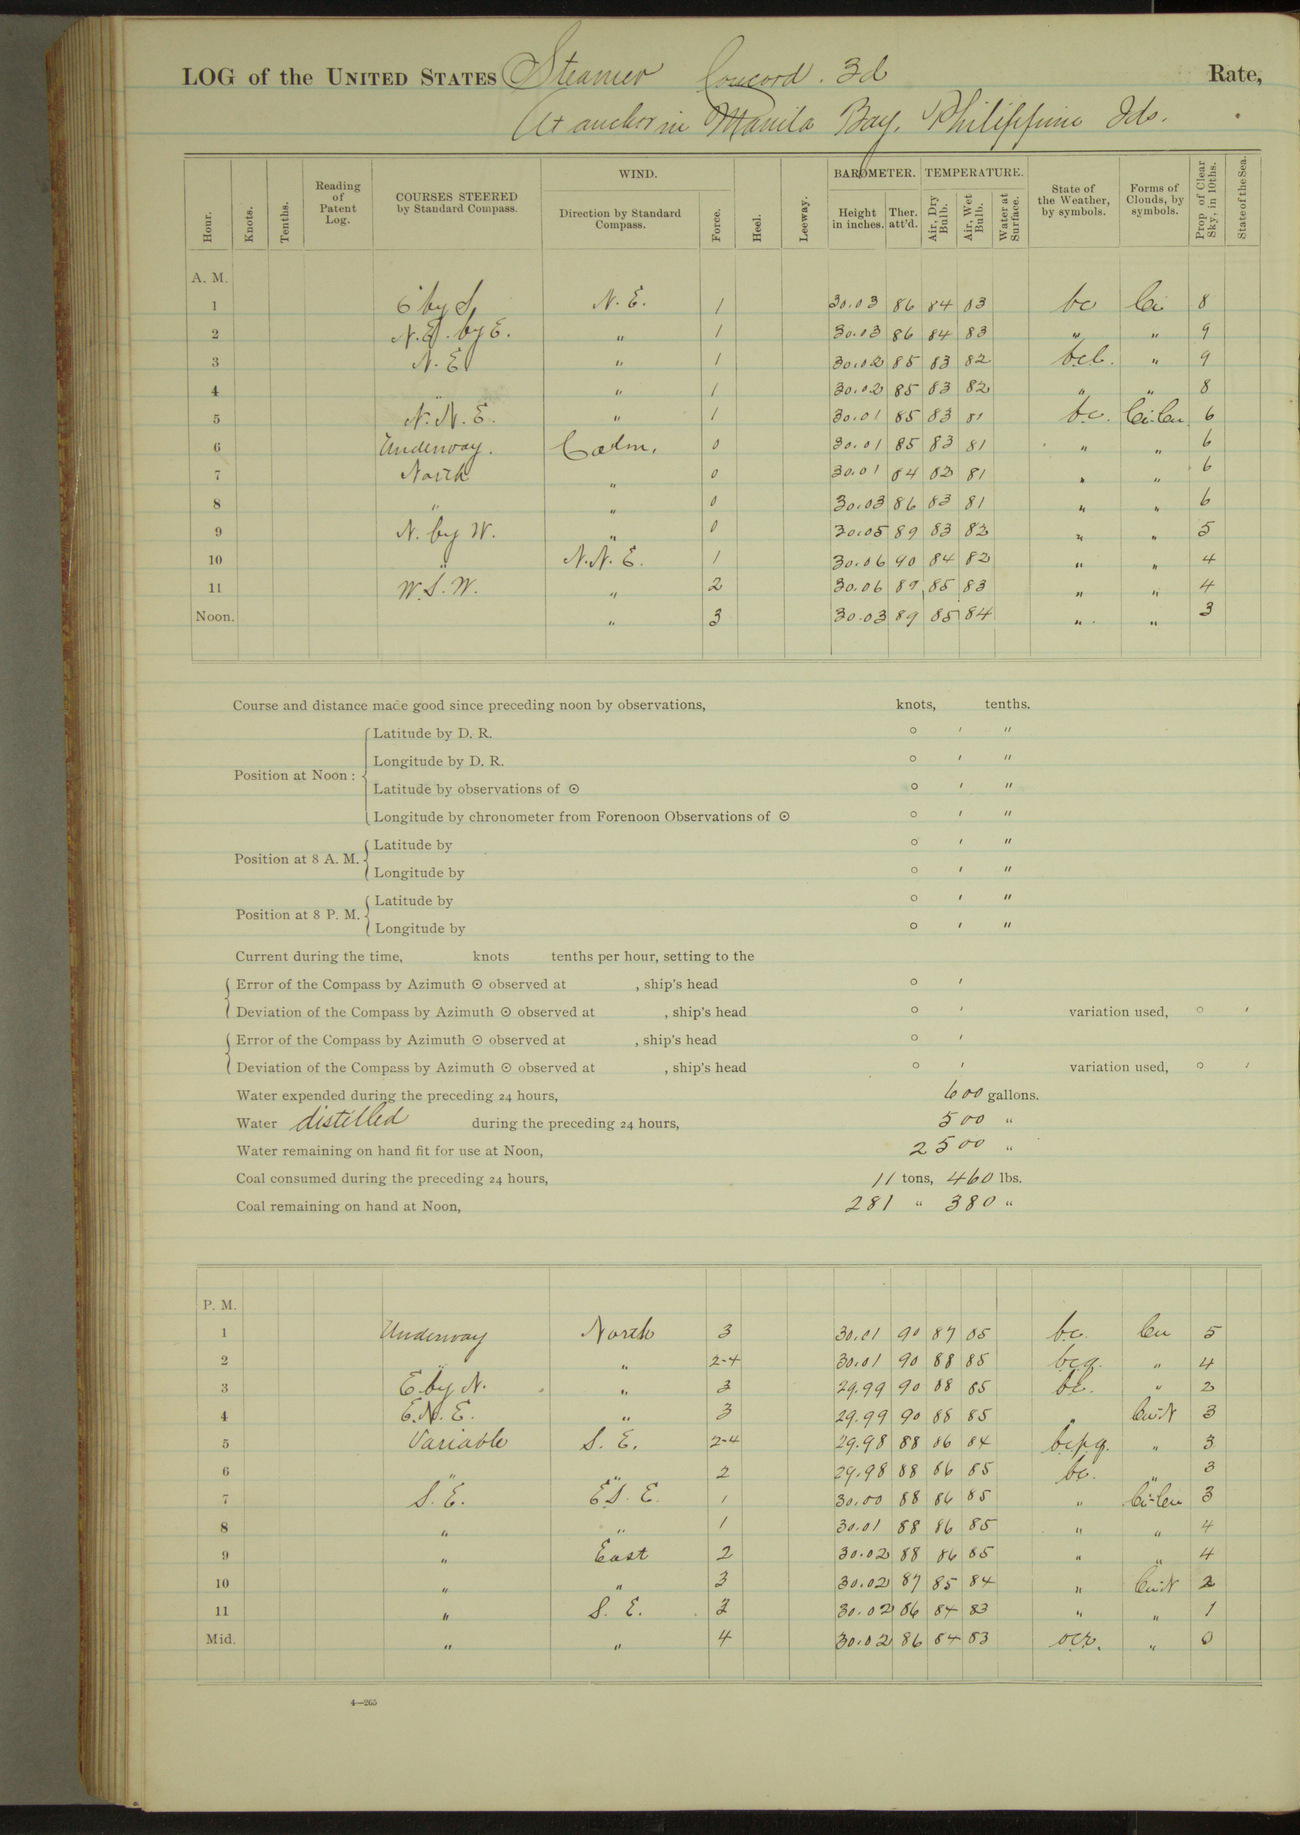 LOG of the UNITED STATES Steamer Concord. 3d Rate,
At anchor in Manila Bay, Philippine Ids.
Hour. Knots. Tenths. Reading of Patent Log. COURSES STEERED by Standard Compass. WIND. Direction by Standard Compass. Force. Heel. Leeway. BAROMETER. Height in inches. Ther. att'd. TEMPERATURE. Air, Dry Bulb. Air, Wet Bulb. Water at Surface. State of the Weather, by symbols. Forms of Clouds, by symbols. Prop. of Clear Sky, in 10ths. State of the Sea.
A. M.
1 E by S. N. E. 1 30.03 86 84 83 bc Ci 8
2 N.E. by E. " 1 30.03 86 84 83 " " 9
3 N.E. " 1 30.02 85 83 82 bcl. " 9
4 " " 1 30.02 85 83 82 " " 8
5 N.N.E. " 1 30.01 85 83 81 bc. Ci-Cu 6
6 Underway. Calm. 0 30.01 85 83 81 " " 6
7 North " 0 30.01 84 82 81 " " 6
8 " " 0 30.03 86 83 81 " " 6
9 N. by W. " 0 30.05 89 83 82 " " 5
10 " N.N.E. 1 30.06 90 84 82 " " 4
11 W.S.W. " 2 30.06 89 85 83 " " 4
Noon. " 3 30.03 89 85 84 " " 3
Course and distance made good since preceding noon by observations, knots, tenths.
Position at Noon: Latitude by D. R. ° ′ ″
Longitude by D. R. ° ′ ″
Latitude by observations of ⊙ ° ′ ″
Longitude by chronometer from Forenoon Observations of ⊙ ° ′ ″
Position at 8 A. M. Latitude by ° ′ ″
Longitude by ° ′ ″
Position at 8 P. M. Latitude by ° ′ ″
Longitude by ° ′ ″
Current during the time, knots tenths per hour, setting to the
Error of the Compass by Azimuth ⊙ observed at , ship's head ° ′
Deviation of the Compass by Azimuth ⊙ observed at , ship's head ° ′ variation used, ° ′
Error of the Compass by Azimuth ⊙ observed at , ship's head ° ′
Deviation of the Compass by Azimuth ⊙ observed at , ship's head ° ′ variation used, ° ′
Water expended during the preceding 24 hours, 600 gallons.
Water distilled during the preceding 24 hours, 500 "
Water remaining on hand fit for use at Noon, 2500 "
Coal consumed during the preceding 24 hours, 11 tons, 460 lbs.
Coal remaining on hand at Noon, 281 " 380 "
P. M.
1 Underway North 3 30.01 90 87 85 bc. Cu 5
2 " " 2-4 30.01 90 88 85 bcq. " 4
3 E. by N. " 3 29.99 90 88 85 bc. " 2
4 E.N.E. " 3 29.99 90 88 85 " Cu-N 3
5 Variable S. E. 2-4 29.98 88 86 84 bcpq. " 3
6 " " 2 29.98 88 86 85 bc. " 3
7 S.E. E.S.E. 1 30.00 88 86 85 " Ci-Cu 3
8 " " 1 30.01 88 86 85 " " 4
9 " East 2 30.02 88 86 85 " " 4
10 " " 3 30.02 87 85 84 " Cu-N 2
11 " S. E. 30.02 86 84 83 " " 1
Mid. " " 4 30.02 86 84 83 ocr. " 0
4—265